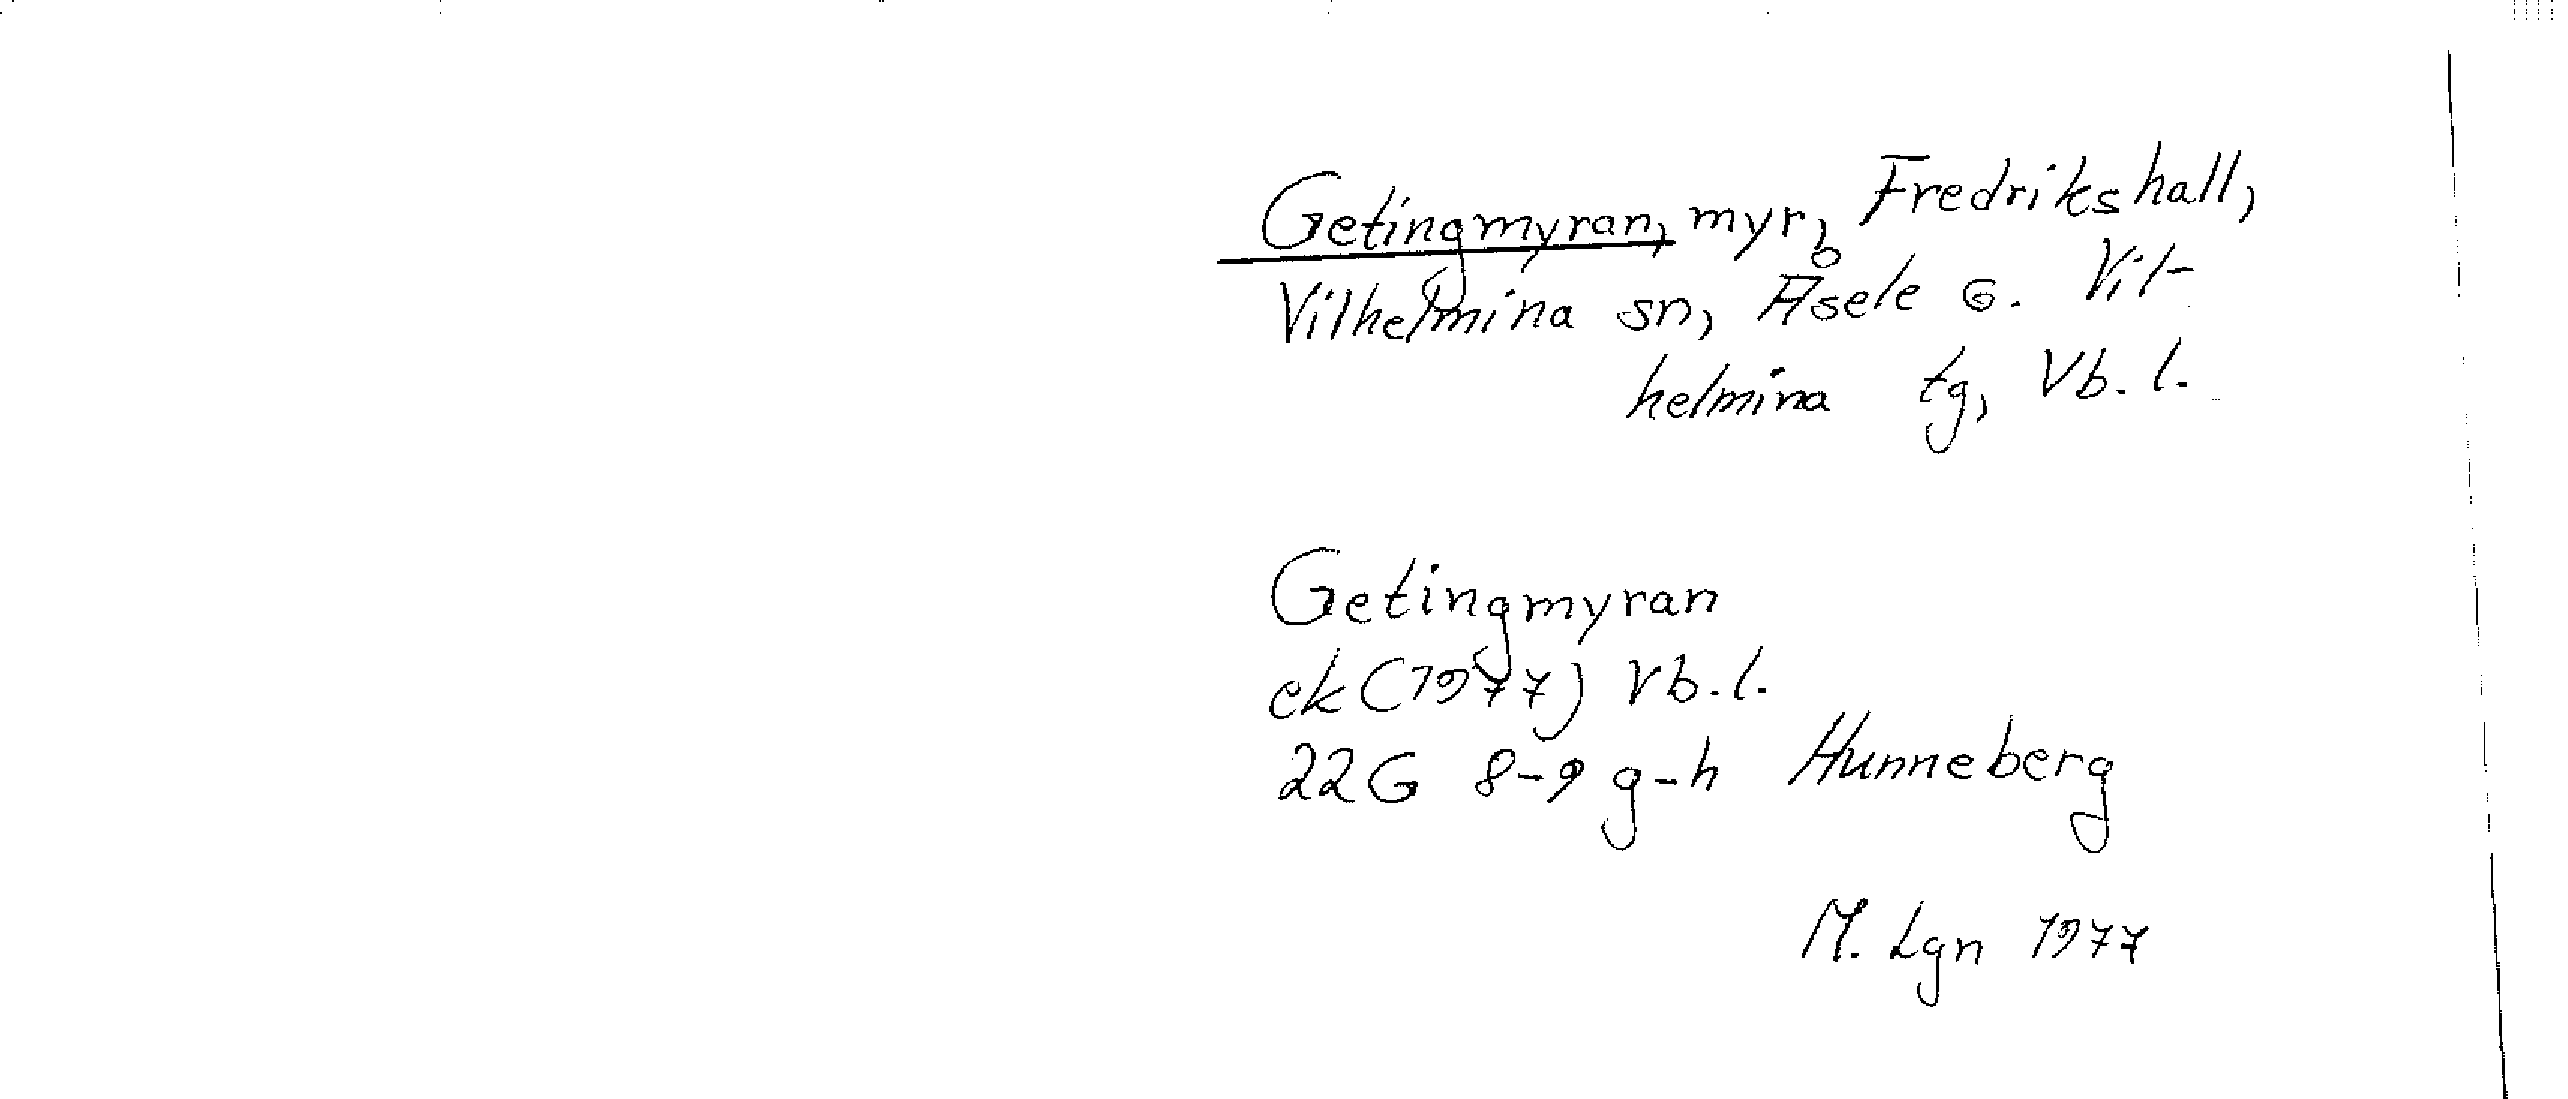 Getingmyran, myr, Fredrikshall,
Vilhelmina sn, Åsele o. Vil-
helmina tg, Vb. l.
Getingmyran
ek (1977) Vb. l.
22G 8-9 g-h Hunneberg
M. Lgn 1977